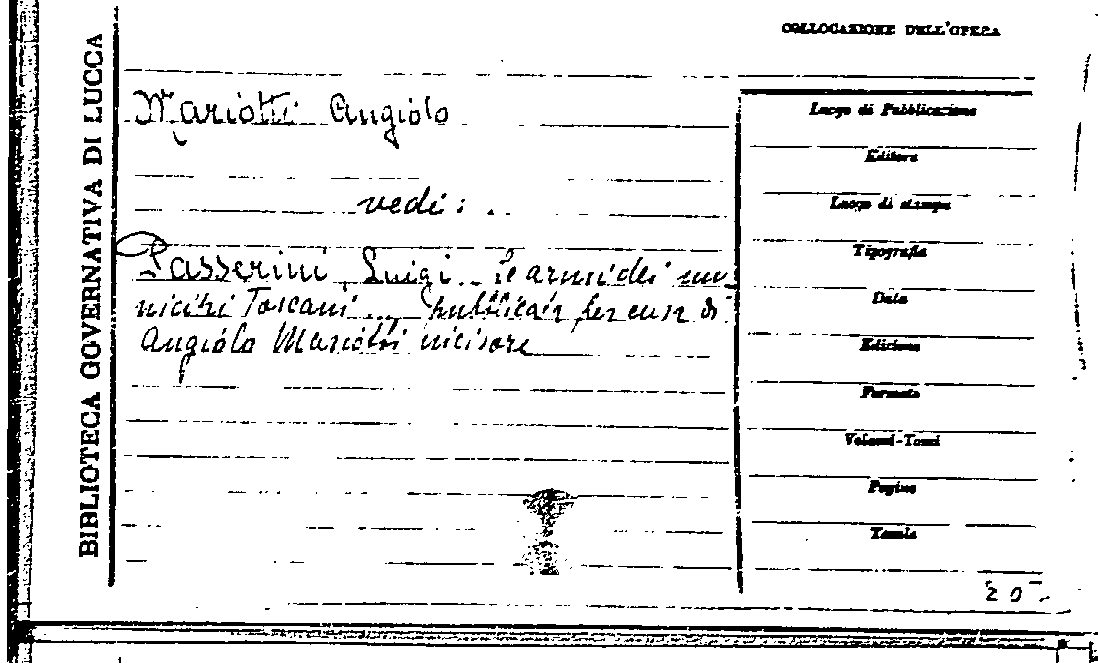 BIBLIOTECA GOVERNATIVA DI LUCCA
COLLOCAZIONE DELL'OPERA
Mariotti Angiolo
vedi:
Passerini, Luigi. Le armi dei mu-
nicipi Toscani ... pubblicate per cura di
Angiolo Mariotti incisore
Luogo di Pubblicazione
Editore
Luogo di stampa
Tipografia
Data
Edizione
Formato
Volumi-Tomi
Pagine
Tavole
20